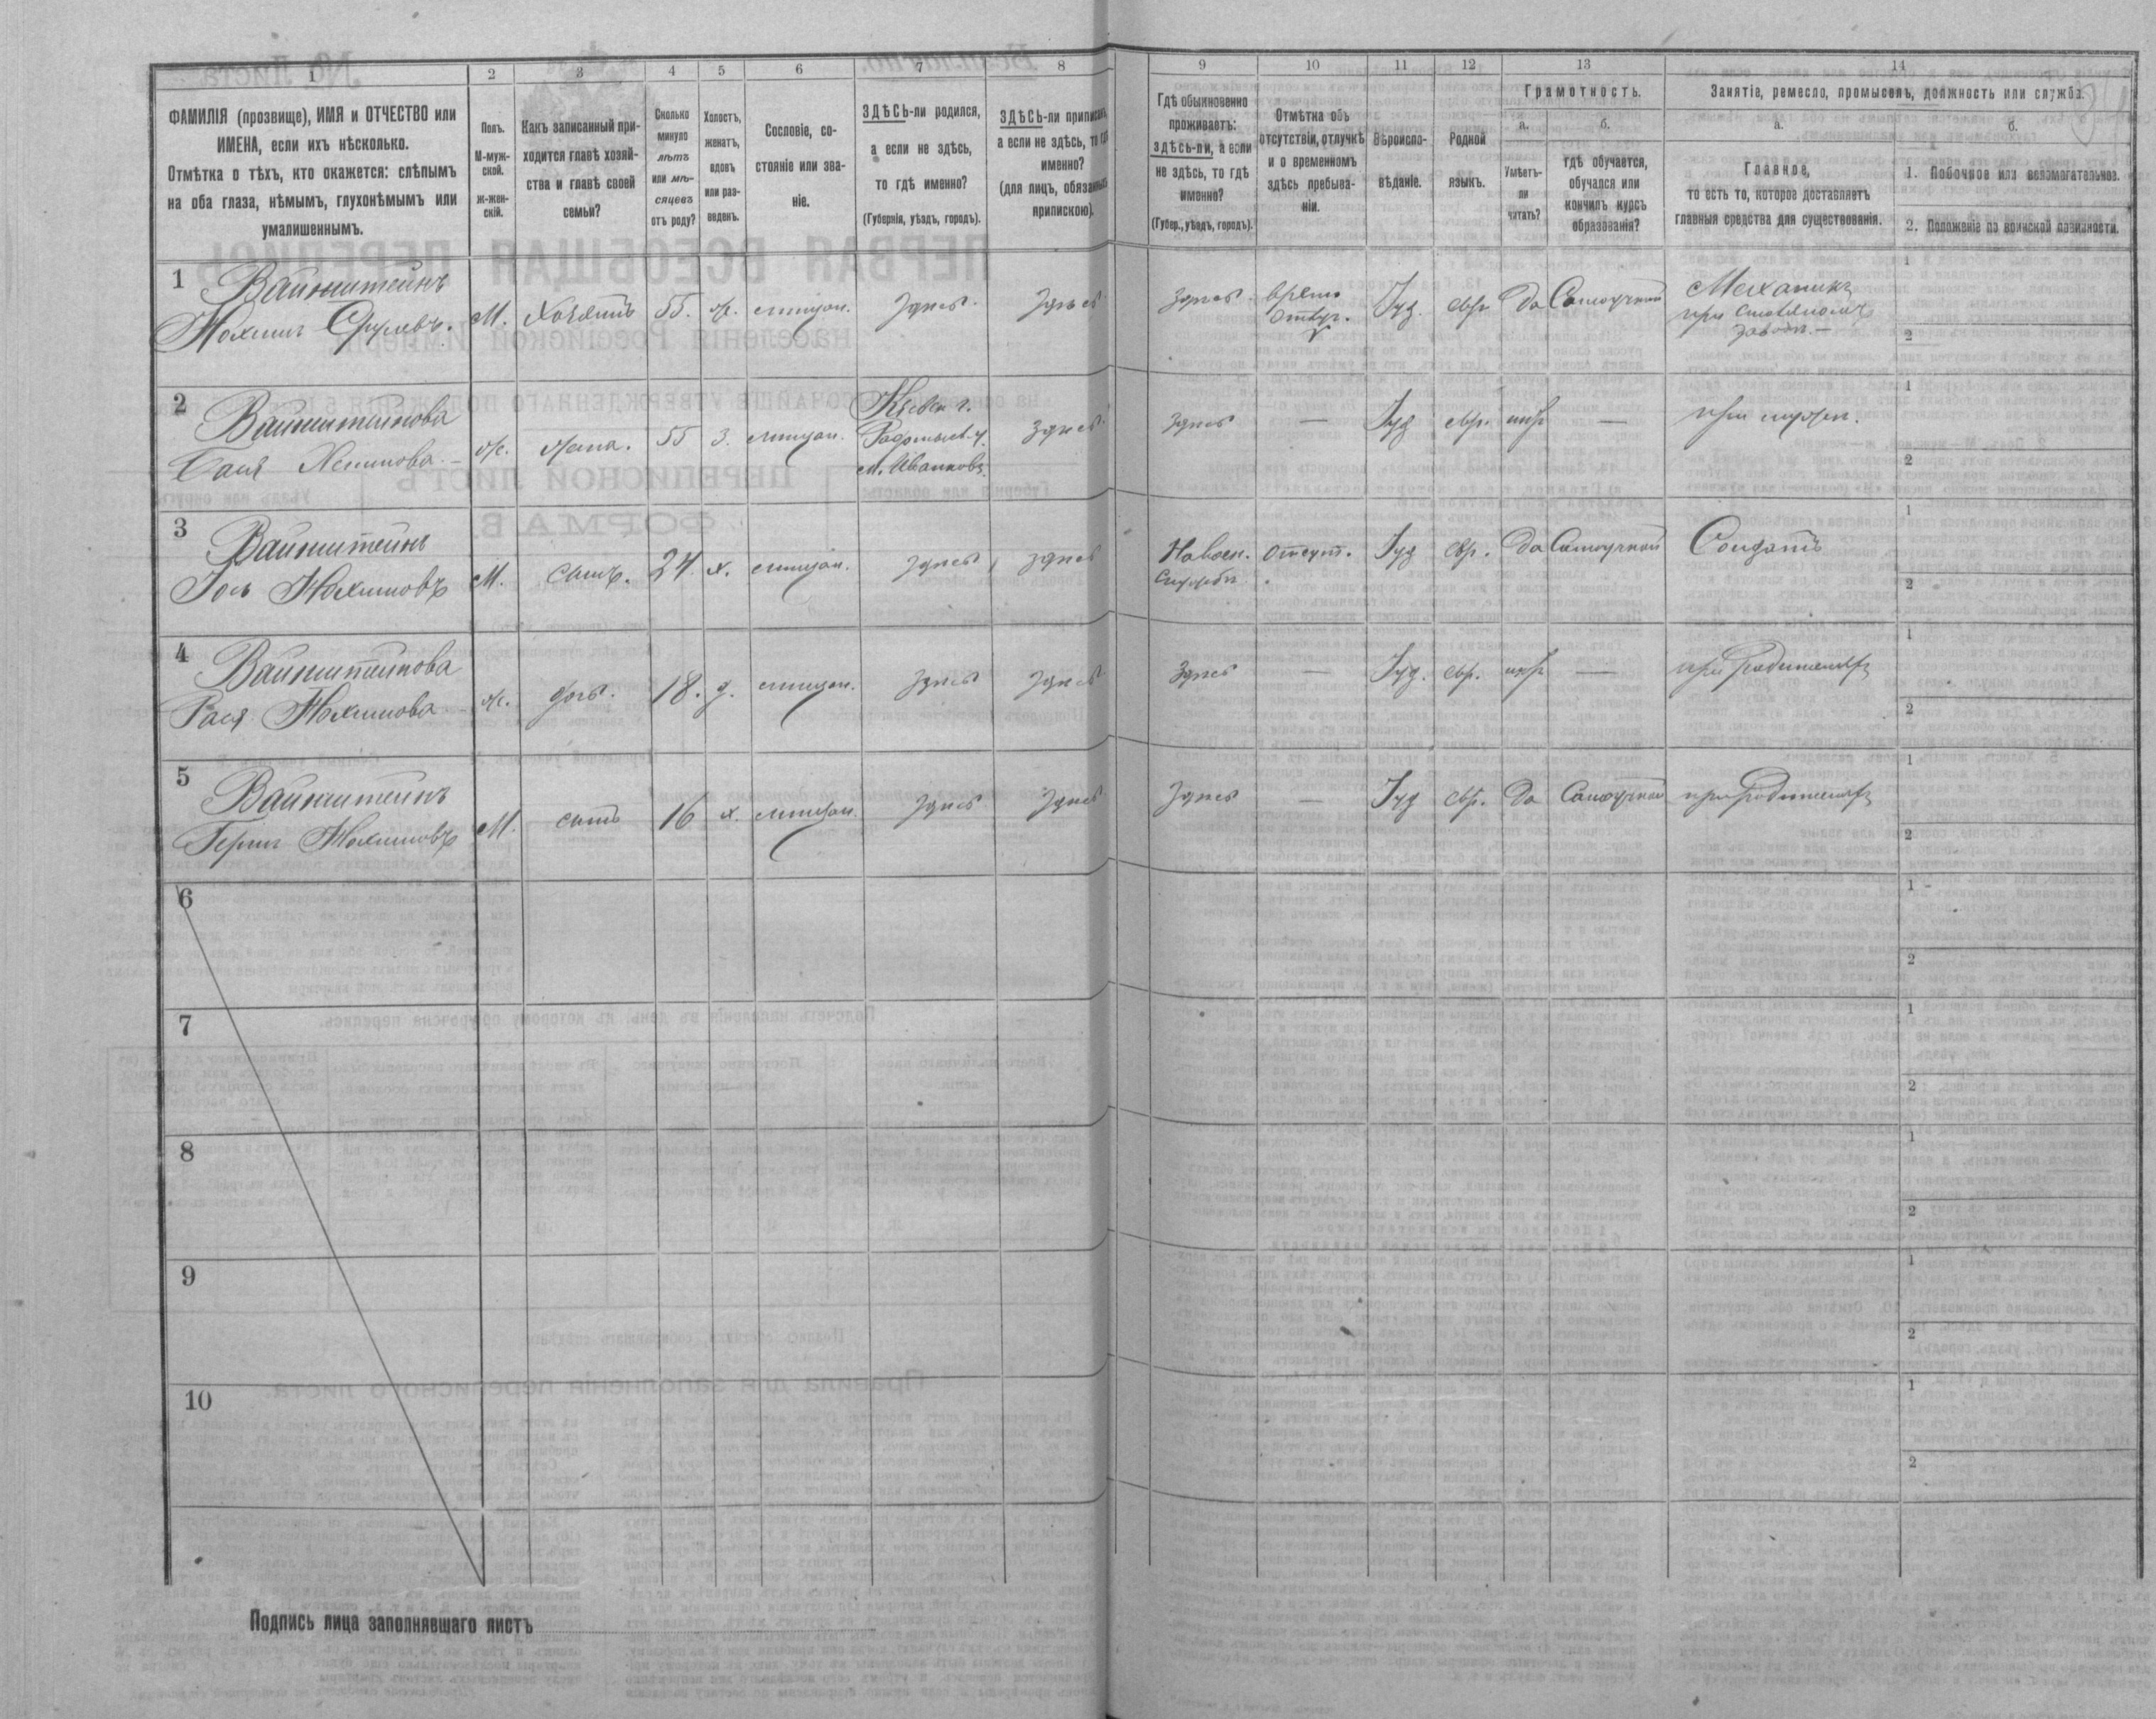 1 2 3 4 5 6 7 8 9 10 11 12 13 14
ФАМИЛІЯ (прозвище), ИМЯ и ОТЧЕСТВО или
ИМЕНА, если ихъ нѣсколько.
Отмѣтка о тѣхъ, кто окажется: слѣпымъ
на оба глаза, нѣмымъ, глухонѣмымъ или
умалишеннымъ.
Полъ.
М-муж-
ской.
ж-жен-
скій.
Какъ записанный при-
ходится главѣ хозяй-
ства и главѣ своей
семьи?
Сколько
минуло
лѣтъ
или мѣ-
сяцевъ
отъ роду?
Холостъ,
женатъ,
вдовъ
или раз-
веденъ.
Сословіе, со-
стояніе или зва-
ніе.
ЗДѢСЬ-ли родился,
а если не здѣсь,
то гдѣ именно?
(Губернія, уѣздъ, городъ).
ЗДѢСЬ-ли приписанъ,
а если не здѣсь, то гдѣ
именно?
(для лицъ, обязанныхъ
припискою).
Гдѣ обыкновенно
проживаетъ:
здѣсь-ли, а если
не здѣсь, то гдѣ
именно?
(Губер., уѣздъ, городъ).
Отмѣтка объ
отсутствіи, отлучкѣ
и о временномъ
здѣсь пребыва-
ніи.
Вѣроиспо-
вѣданіе.
Родной
языкъ.
Грамотность.
а.
Умѣетъ-
ли
читать?
б.
гдѣ обучается,
обучался или
кончилъ курсъ
образованія?
Занятіе, ремесло, промыселъ, должность или служба.
а.
Главное,
то есть то, которое доставляетъ
главныя средства для существованія.
б.
1. Побочное или вспомогательное.
2. Положеніе по воинской повинности.
1 Вайнштейнъ
Нохимъ Срулевъ. М. Хозяинъ 55. ж. мѣщан. Здѣсь. Здѣсь Здѣсь. Врем. отлуч. Іуд. евр да Самоучкой Механикъ
при
завод.
1
2
2 Вайнштейнова
Бася ж. жена. 55 з. мѣщан. Кіевск. г.
Радомысл. у.
м. Иванковъ Здѣсь Здѣсь — Іуд евр. нѣт — при мужѣ.
1
2
3 Вайнштейнъ
Іось Нохимовъ М. сынъ. 24. х. мѣщан. здѣсь здѣсь На воен.
службѣ Отсут. Іуд евр. Да Самоучкой Солдатъ
1
2
4 Вайнштейнова
Рася Нохимова ж. дочь. 18. д. мѣщан. Здѣсь Здѣсь Здѣсь — Іуд. евр. нѣт — при родителяхъ
1
2
5 Вайнштейнъ
Герш Нохимовъ М. сынъ 16 х. мѣщан. Здѣсь Здѣсь Здѣсь — Іуд евр. Да Самоучкой при родителяхъ
1
2
6
1
2
7
1
2
8
1
2
9
1
2
10
1
2
Подпись лица заполнявшаго листъ